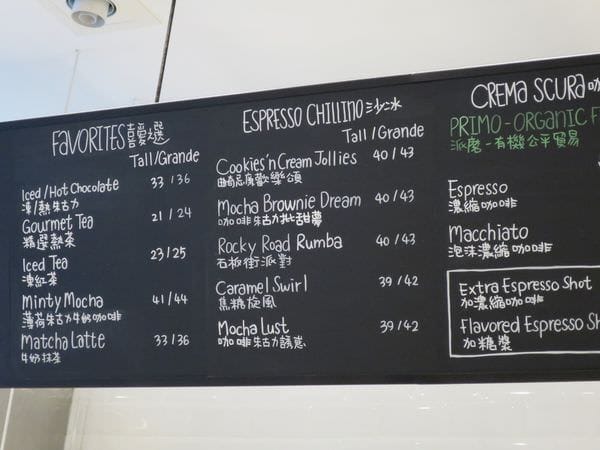 FAVORITES喜愛選
Tall/Grande
Iced/Hot Chocolate 33/36
凍/熱朱古力
Gourmet Tea 21/24
精選熱茶
Iced Tea 23/25
凍紅茶
Minty Mocha 41/44
薄荷朱古力牛奶咖啡
Matcha Latte 33/36
牛奶抹茶
ESPRESSO CHILLINO沙冰
Tall/Grande
Cookies'n Cream Jollies 40/43
曲奇忌廉歡樂頌
Mocha Brownie Dream 40/43
咖啡朱古力批甜夢
Rocky Road Rumba 40/43
石板街派對
Caramel Swirl 39/42
焦糖旋風
Mocha Lust 39/42
咖啡朱古力誘惑
CREMA SCURA咖
PRIMO-ORGANIC F
派磨-有機公平貿易
Espresso
濃縮咖啡
Macchiato
泡沫濃縮咖啡
Extra Espresso Shot
加濃縮咖啡
Flavored Espresso Sh
加糖漿